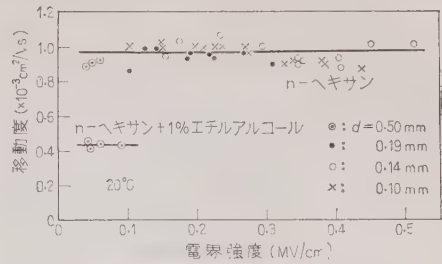 移動度(×10⁻³cm²/V s)
1.2
1.0
0.8
0.6
0.4
0.2
0
n-ヘキサン
n-ヘキサン+1%エチルアルコール
20℃
⊙: d=0.50 mm
●: 0.19 mm
○: 0.14 mm
×: 0.10 mm
0 0.1 0.2 0.3 0.4 0.5
電界強度(MV/cm)